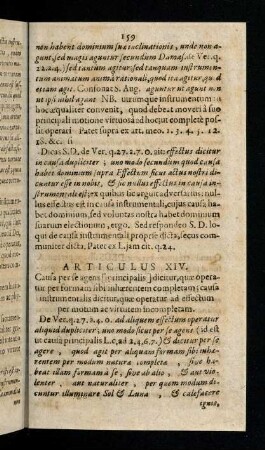 159
non habent dominium suæ inclinationis, unde non a-
gunt, sed magis aguntur secundum Damasc. Ver. q.
22. a. 4.) sed tantum agitur; sed tanquam instrumen-
tum animatum animâ rationali, quod ita agitur, qu. d
etiam agit. Consonat S. Aug. aguntur ut agant non
ut ipsi nihil agant NB. utrumque instrumentum in
hoc æqualiter convenit, quod debeat moveri à suo
principali motione virtuosâ ad hoc, ut completè pos-
sit operari Patet supra ex art. meo. 1. 3. 4. 5. 12.
Dicas S. D. de Ver. q. 27. 2. 0. ait: effectus dicitur
in causa dupliciter; uno modo secundum quod causa
habet dominium supra Effectum sicut actus nostri di-
cuntur esse in nobis, & sic nullus effectus in causâ in-
strumentali est; Ex quibus sic arguit adversarius: nul-
lus effectus est in causâ instrumentali, cujus causa ha-
bet dominium, sed voluntas nostra habet dominium
suarum electionum, ergo. Sed respondeo S. D. lo-
qui de causa instrumentali propriè dicta, secus com-
muniter dicta, Patet ex L. jam cit. q. 24.
ARTICULUS XIV.
Causa per se agens & principalis dicitur, quæ opera-
tur per formam sibi inhærentem completam; causa
instrumentalis dicitur, quæ operatur ad effectum
per motum ac virtutem incompletam.
De Ver. q. 27. a. 4. 0. ad aliquem effectum operatur
aliquid dupliciter, uno modo sicut per se agens (id est
ut causa principalis L. c, ad 2. 3. 6. 7.) & dicitur per se
agere, quod agit per aliquam formam sibi inhæ-
rentem per modum naturæ completæ, sive ha-
beat illam formam à se, sive ab alio, & aut vio-
lenter aut naturaliter, per quem modum di-
cuntur illuminare Sol & Luna, & calefacere
ignis,